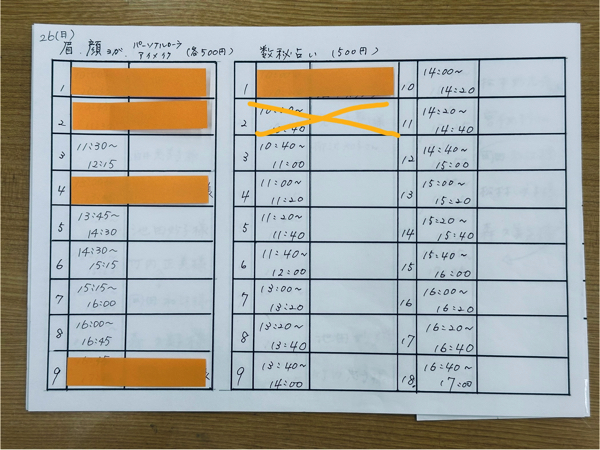 26(日)
眉、顔ヨガ、パーソナルカラー アイメイク (各500円)
数秘占い (500円)
1
2
3 11:30~ 12:15
4 様
5 13:45~ 14:30
6 14:30~ 15:15
7 15:15~ 16:00
8 16:00~ 16:45
9
1
2
3 10:40~ 11:00
4 11:00~ 11:20
5 11:20~ 11:40
6 11:40~ 12:00
7 13:00~ 13:20
8 13:20~ 13:40
9 13:40~ 14:00
10 14:00~ 14:20
11 14:20~ 14:40
12 14:40~ 15:00
13 15:00~ 15:20
14 15:20~ 15:40
15 15:40~ 16:00
16 16:00~ 16:20
17 16:20~ 16:40
18 16:40~ 17:00